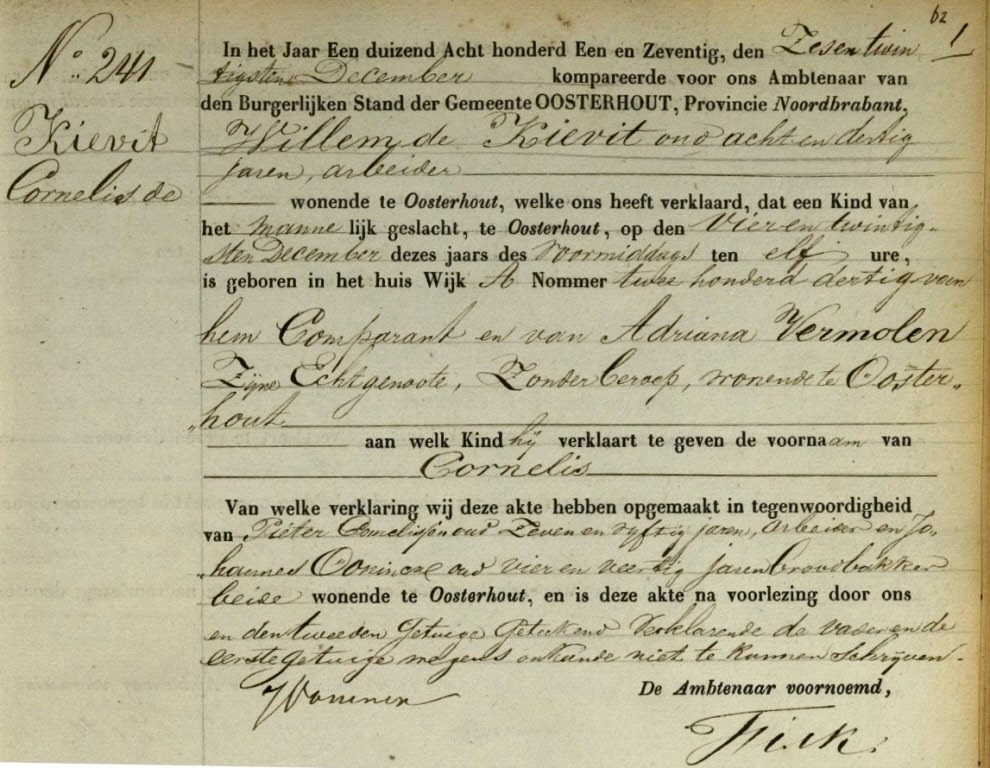 62
1
N.° 241
Kievit
Cornelis de
In het Jaar Een duizend Acht honderd Een en Zeventig, den Zesentwin
tigsten December kompareerde voor ons Ambtenaar van
den Burgerlijken Stand der Gemeente OOSTERHOUT, Provincie Noordbrabant,
Willem de Kievit oud acht en dertig
jaren, arbeider
wonende te Oosterhout, welke ons heeft verklaard, dat een Kind van
het mannelijk geslacht, te Oosterhout, op den vier en twintig-
sten December dezes jaars des voormiddags ten elf ure,
is geboren in het huis Wijk A Nommer twee honderd dertig van
hem Comparant en van Adriana Vermolen
Zijne Echtgenoote, Zonder beroep, wonende te Ooster-
hout
aan welk Kind hij verklaart te geven de voornaam van
Cornelis
Van welke verklaring wij deze akte hebben opgemaakt in tegenwoordigheid
van Pieter oud Zeven en vijftig jaren, arbeider en Jo-
hannes oud vier en veertig jaren broodbakker
beide wonende te Oosterhout, en is deze akte na voorlezing door ons
en den tweeden Getuige Geteekend Verklarende de vader en de
eerste getuige wegens onkunde niet te kunnen Schrijven.
De Ambtenaar voornoemd,